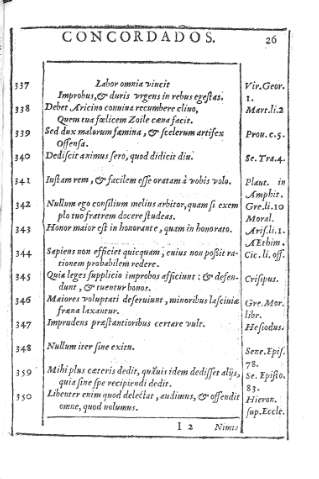 CONCORDADOS. 26
337 Labor omnia vincit Vir. Geor.
Improbus, & duris vrgens in rebus egestas. 1.
338 Debet Aricino conuiua recumbere cliuo, Mart. li. 2
Quem tua fœlicem Zoile cœna facit.
339 Sed dux malorum fœmina, & scelerum artifex Prou. c. 5.
Offensa.
340 Dediscit animus sero, quod didicit diu. Se. Tra. 4.
341 Iustam rem, & facilem esse oratam à vobis volo. Plaut. in
Amphit.
342 Nullum ego consilium melius arbitor, quam si exem Gre. li. 10
plo tuo fratrem docere studeas. Moral.
343 Honor maior est in honorante, quam in honorato. Arist. li. 1.
AEthim.
344 Sapiens non efficiet quicquam, cuius non possit ra- Cic. li. off.
tionem probabilem redere.
345 Quia leges supplicio improbos afficiunt: & defen- Crisipus.
dunt, & tuentur bonos.
346 Maiores voluptati deseruiunt, minoribus lasciuiæ Gre. Mor.
fræna laxantur. libr.
347 Imprudens præstantioribus certare vult. Hesiodus.
348 Nullum iter sine exitu. Sene. Epis.
78.
359 Mihi plus cæteris dedit, qui suis idem dedisset alijs, Se. Episto.
quia sine spe recipiendi dedit. 83.
350 Libenter enim quod delectat, audimus, & offendit Hieron.
omne, quod nolumus. sup. Eccle.
I 2 Nimis